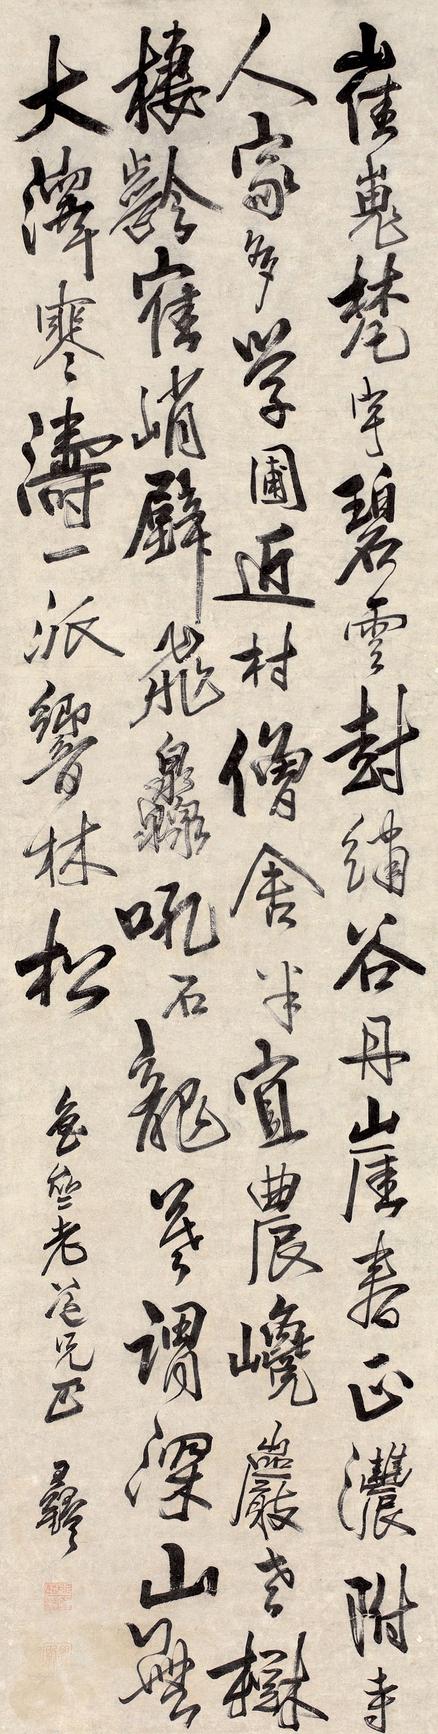 崔嵬梵宇碧雲封繡谷丹崖春正濃附寺
人家多學圃近村僧舍半宜農巉巖老樹
棲齡寉峭壁飛灥吼石龍莫謂深山無
大澤寒濤一派響林松
老道兄正